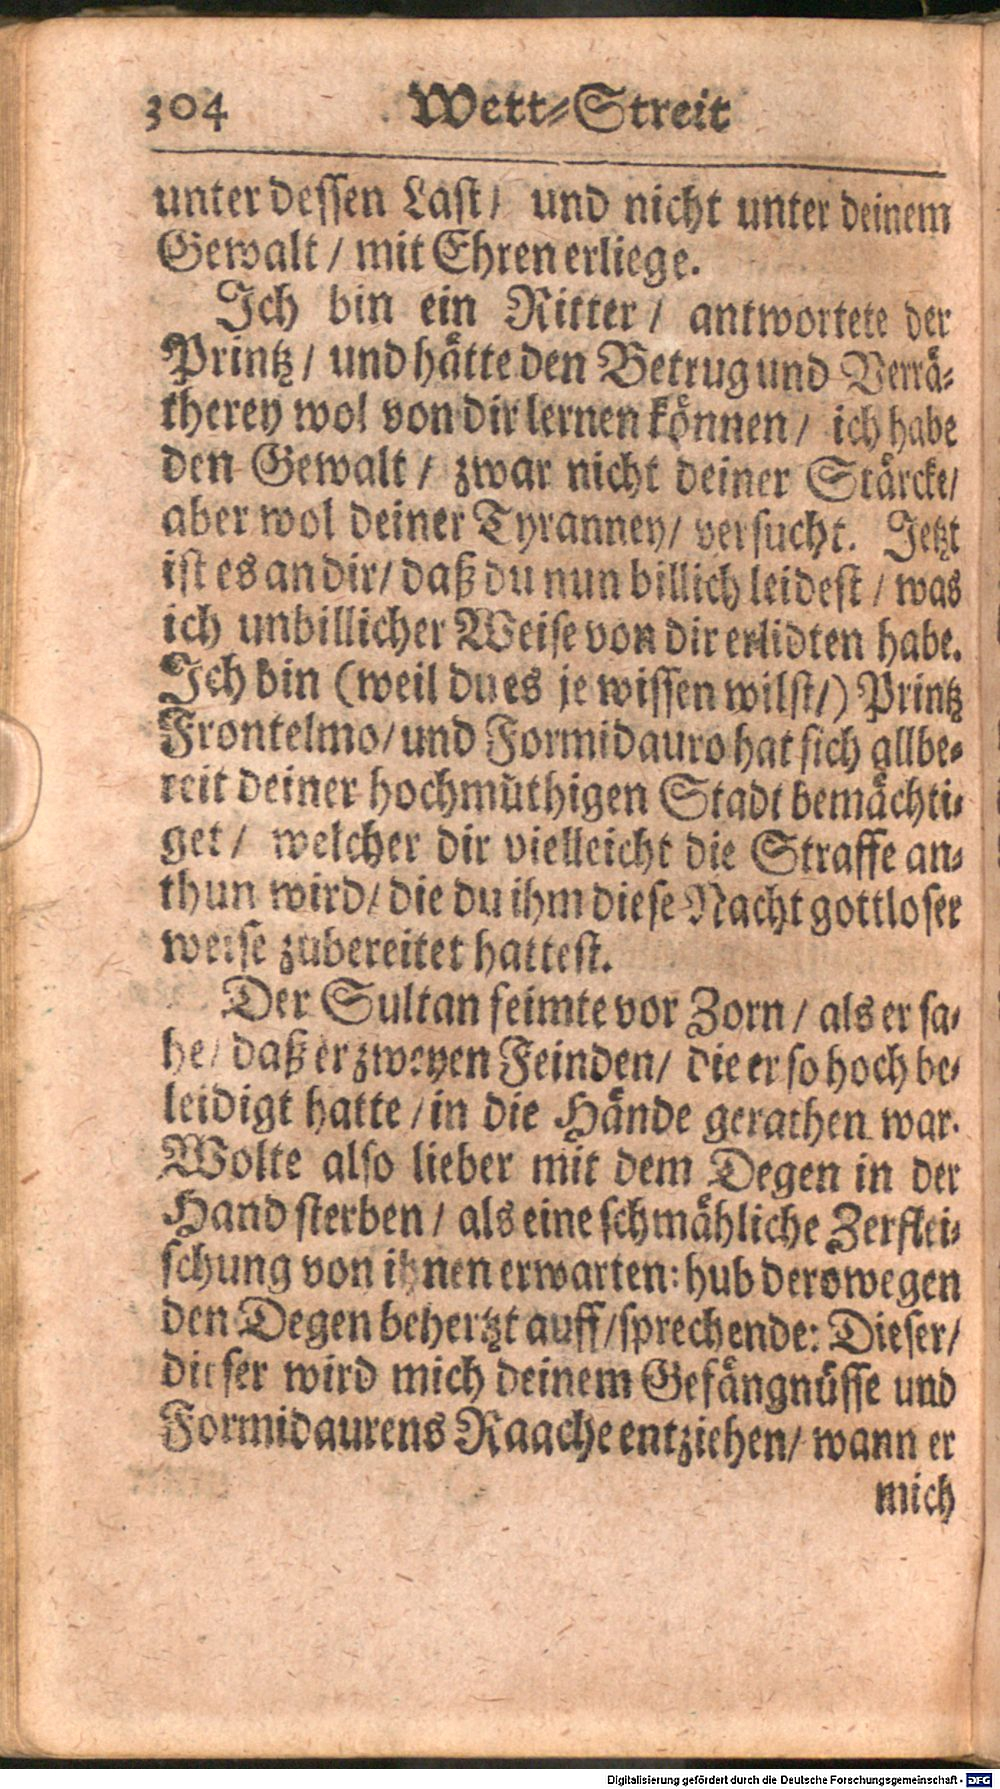 304 Wett-Streit
unter dessen Last/ und nicht unter deinem
Gewalt / mit Ehren erliege.
Ich bin ein Ritter / antwortete der
Printz / und hätte den Betrug und Verrä-
therey wol von dir lernen können / ich habe
den Gewalt / zwar nicht deiner Stärcke/
aber wol deiner Tyranney/ versucht. Jetzt
ist es an dir/ daß du nun billich leidest / was
ich unbillicher Weise von dir erlidten habe.
Ich bin (weil du es je wissen wilst/) Printz
Frontelmo/ und Formidauro hat sich allbe-
reit deiner hochmüthigen Stadt bemächti-
get / welcher dir vielleicht die Straffe an-
thun wird/ die du ihm diese Nacht gottloser
weise zubereitet hattest.
Der Sultan feimte vor Zorn / als er sa-
he/ daß er zweyen Feinden/ die er so hoch be-
leidigt hatte / in die Hände gerathen war.
Wolte also lieber mit dem Degen in der
Hand sterben / als eine schmähliche Zerflei-
schung von ihnen erwarten: hub derowegen
den Degen behertzt auff/ sprechende: Dieser/
dieser wird mich deinem Gefängnüsse und
Formidaurens Raache entziehen/ wann er
mich
Digitalisierung gefördert durch die Deutsche Forschungsgemeinschaft - DFG